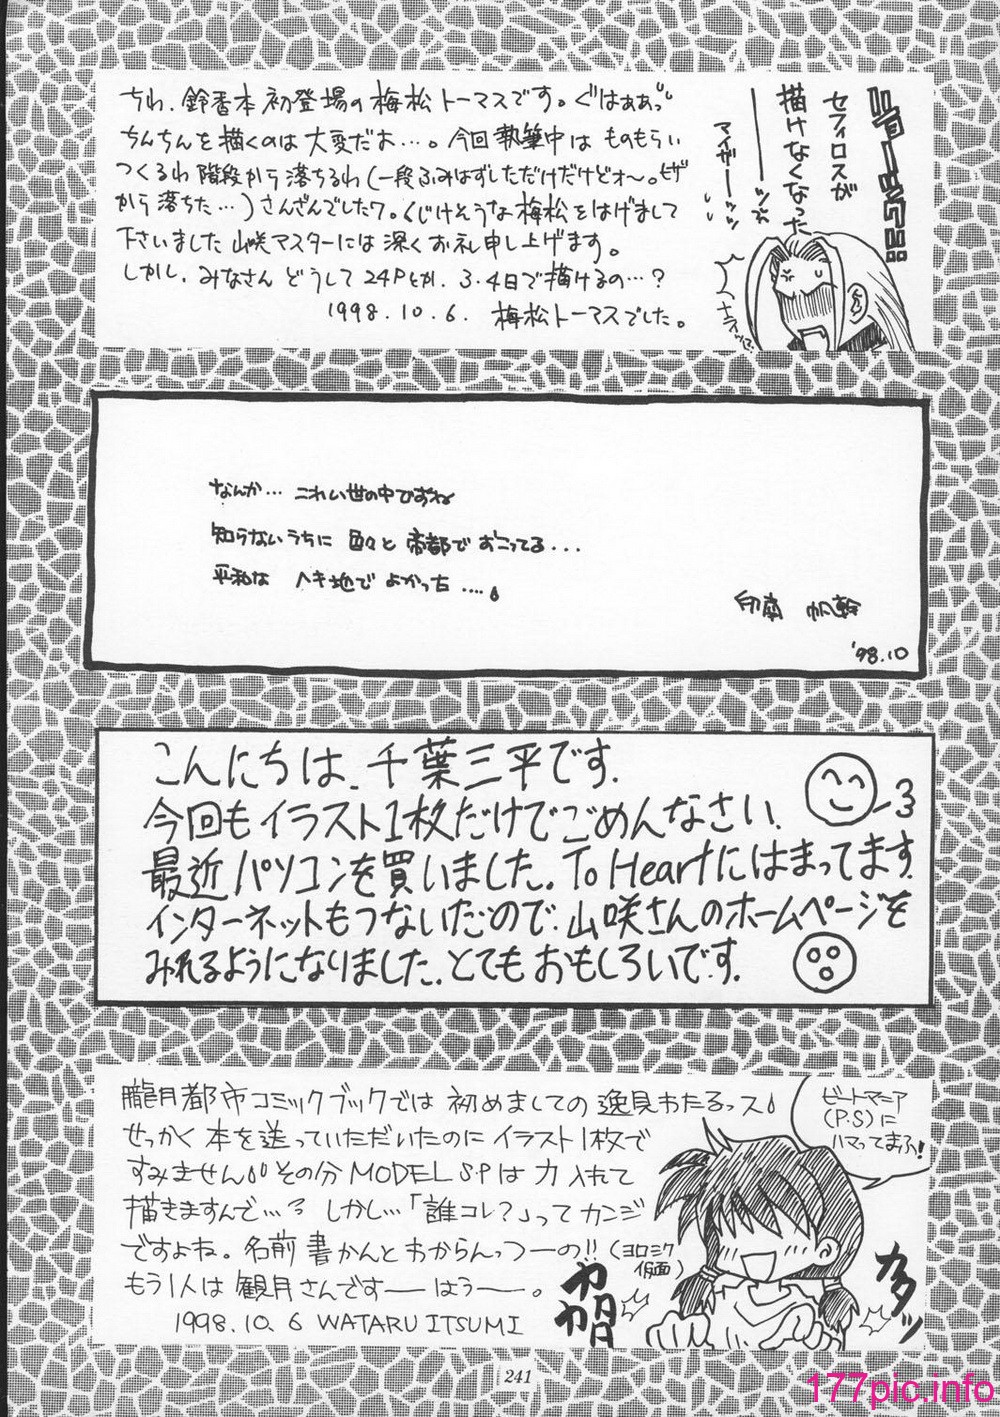 ちわ、鈴香本初登場の梅松トーマスです。ぐはぁぁ。
ちんちんを描くのは大変だぉ…。今回執筆中はものもらい
つくるわ階段から落ちるわ（一段ふみはずしただけだけどォ〜。ヒザ
から落ちた…）さんざんでしたワ。くじけそうな梅松をはげまして
下さいました山咲マスターには深くお礼申し上げます。
しかし、みなさんどうして24Pとか、3・4日で描けるの…？
1998.10.6. 梅松トーマスでした。
セフィロスが
描けなくなった
マイガーーッッ
なんか… こわい世の中ですね
知らないうちに 色々と 帝都でおこってる...
平和な ヘキ地で よかった ....。
'98.10
こんにちは、千葉三平です。
今回もイラスト1枚だけでごめんなさい。
最近パソコンを買いました。To Heartにはまってます。
インターネットもつないだので、山咲さんのホームページを
みれるようになりました。とてもおもしろいです。
朧月都市コミックブックでは初めましての逸見わたるっス！
せっかく本を送っていただいたのにイラスト1枚で
すみません。その分MODEL S.Pは力入れて
描きますんで…？しかし…「誰コレ？」ってカンジ
ですよね。名前書かんとわからんっつーの!!（ヨロミク仮面）
もう1人は観月さんですー はぅー。
1998.10.6 WATARU ITSUMI
ビートマニア
(P.S)に
ハマってまふ！
カタカタ
カタッ
241
177pic.info